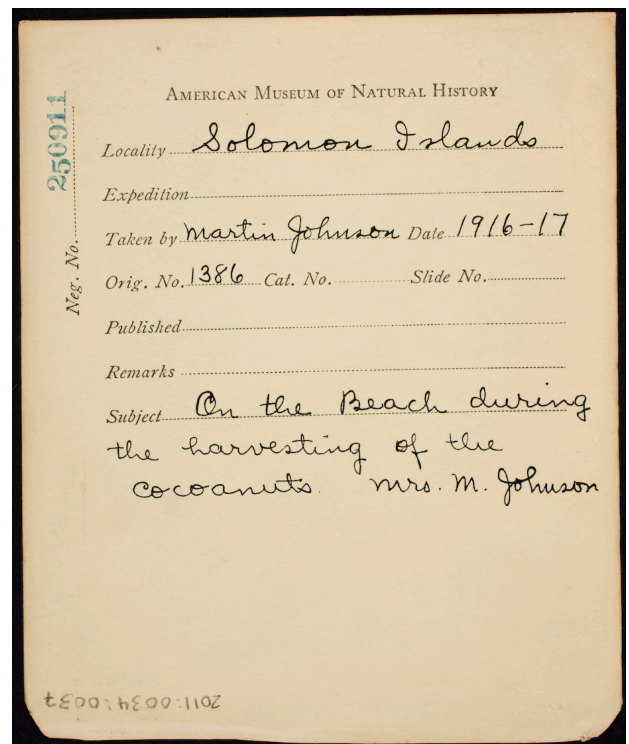 AMERICAN MUSEUM OF NATURAL HISTORY
Locality Solomon Islands
Expedition
Taken by Martin Johnson Date 1916-17
Orig. No. 1386 Cat. No. Slide No.
Published
Remarks
Subject On the Beach during
the harvesting of the
cocoanuts. Mrs. M. Johnson
Neg. No. 250911
2011:0034:0037